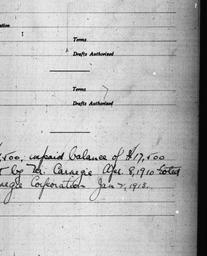 Terms
Drafts Authorized
Terms
Drafts Authorized
,500, unpaid balance of $17,500
by Mr. Carnegie Apr. 8, 1910 voted
negie Corporation Jan 7, 1913.